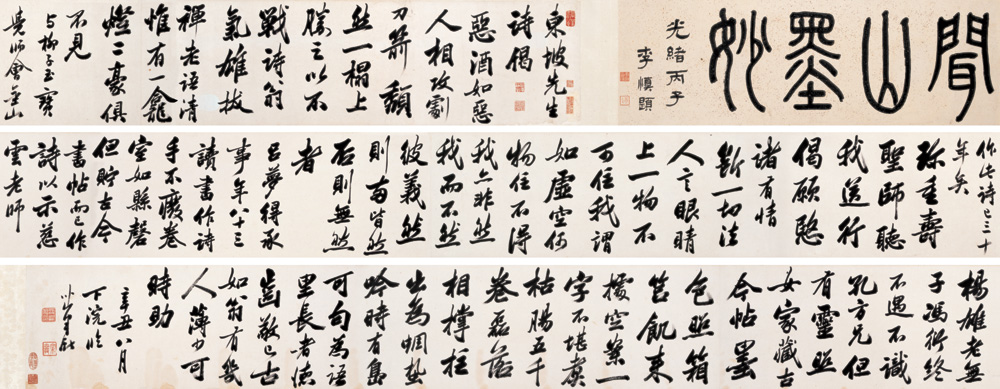 聞山墨妙
光緒丙子
李慎題
東坡先生
詩偈
惡酒如惡
人相攻劇
刀箭頹
然一榻上
勝之以不
戰詩翁
氣雄拔
禪老語清
惟有一龕
燈二豪俱
不見
與柳子玉寶
覺師會金山
作此詩已三十
年矣
珍重壽
聖師聽
我送行
偈願愍
諸有情
斷一切法
人言眼睛
上一物不
可住我謂
如虛空何
物住不得
我亦非然
我而不然
彼義然
則兩皆然
否則無然
者
呂夢得承
事年八十三
讀書作詩
手不廢卷
室如縣磬
但貯古今
書帖而已作
詩以示慈
雲老師
楊雄老無
子馮衍終
不遇不識
孔方兄但
有靈照
女家藏古
今帖墨
色照箱
筥飢來
據空案一
字不堪煑
枯腸五千
卷磊落
相撐拄
出為蜩蛩
吟時有島
可句為語
里長者德
齒敬已古
如翁有幾
人薄少可
時助
辛丑八月
下浣臨